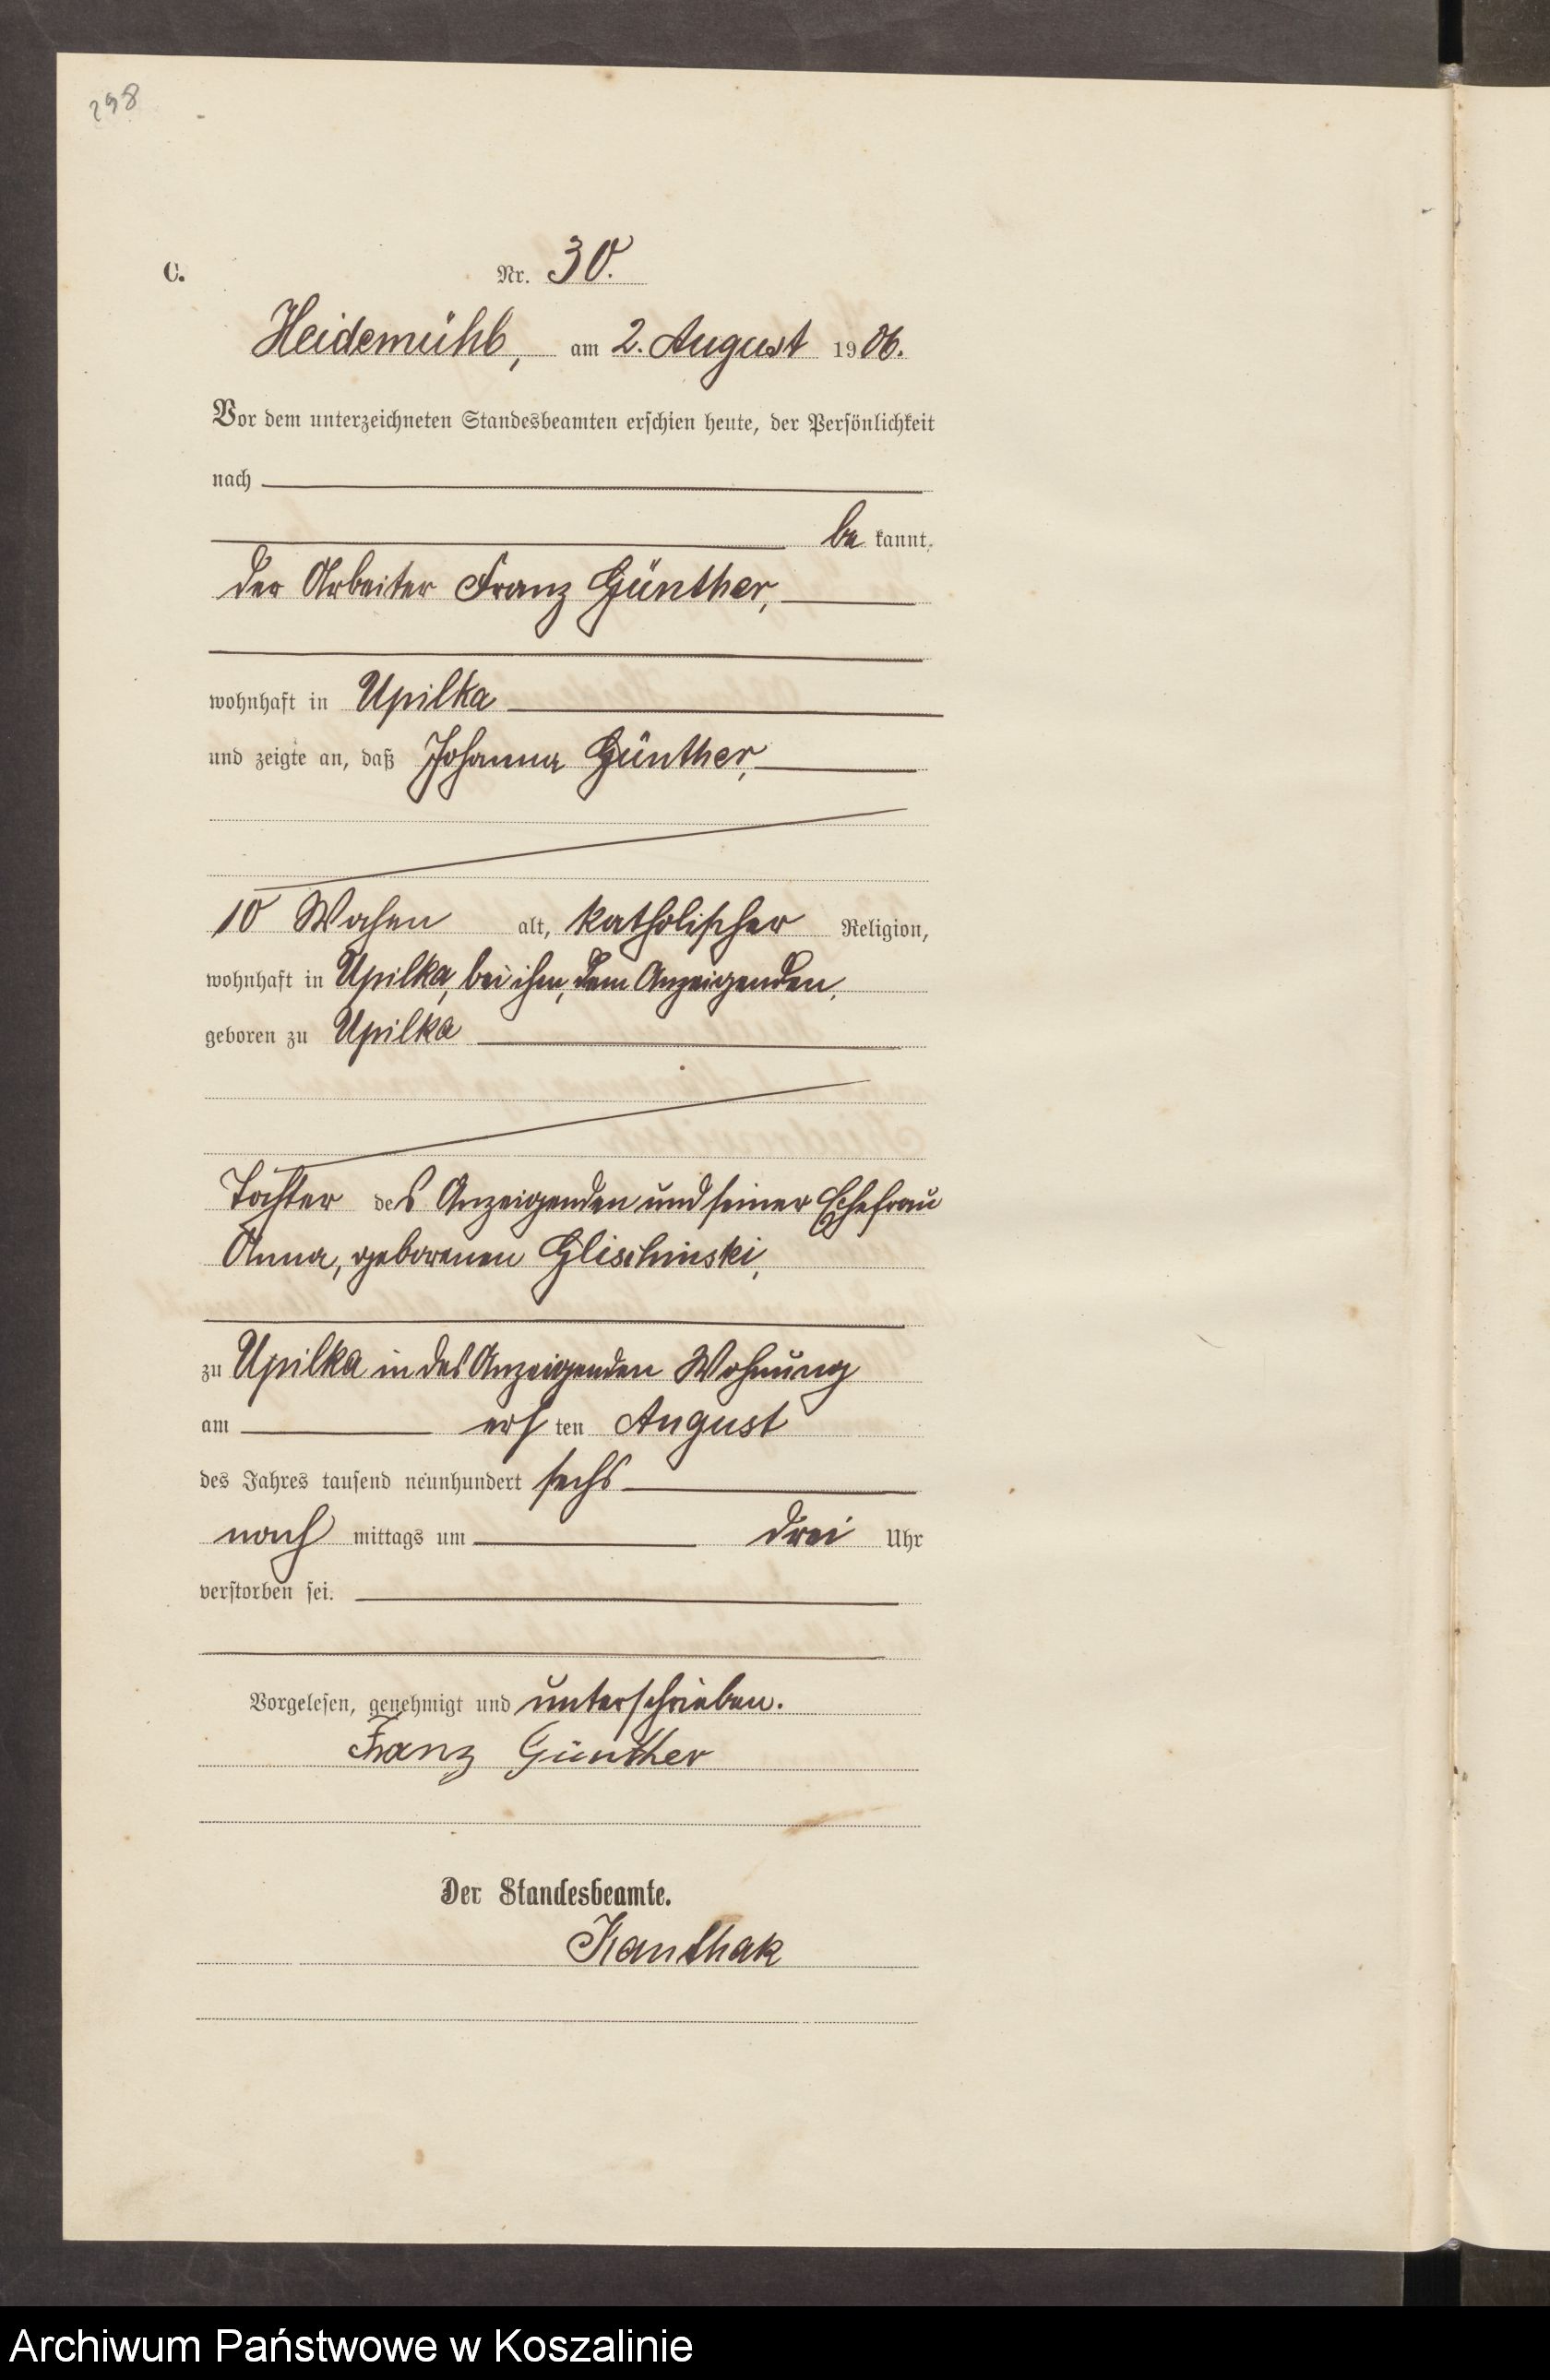 298
C.
Nr. 30.
Heidemühl, am 2. August 1906.
Vor dem unterzeichneten Standesbeamten erschien heute, der Persönlichkeit
nach
be kannt,
der Arbeiter Franz Günther,
wohnhaft in Upilka
und zeigte an, daß Johanna Günther,
10 Wochen alt, katholischer Religion,
wohnhaft in Upilka, bei ihm, dem Anzeigenden,
geboren zu Upilka
Tochter des Anzeigenden und seiner Ehefrau
Anna, geborenen Glischinski,
zu Upilka in des Anzeigenden Wohnung
am ersten August
des Jahres tausend neunhundert sechs
nach mittags um drei Uhr
verstorben sei.
Vorgelesen, genehmigt und unterschrieben.
Franz Günther
Der Standesbeamte.
Kanthak
Archiwum Państwowe w Koszalinie